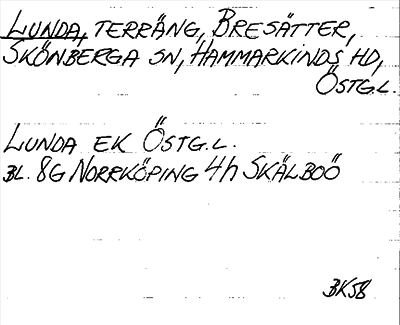 LUNDA, TERRÄNG, BRESÄTTER,
SKÖNBERGA SN, HAMMARKINDS HD,
ÖSTG.L.
LUNDA EK ÖSTG.L.
BL. 8G NORRKÖPING 4h SKÄLBOÖ
BK58